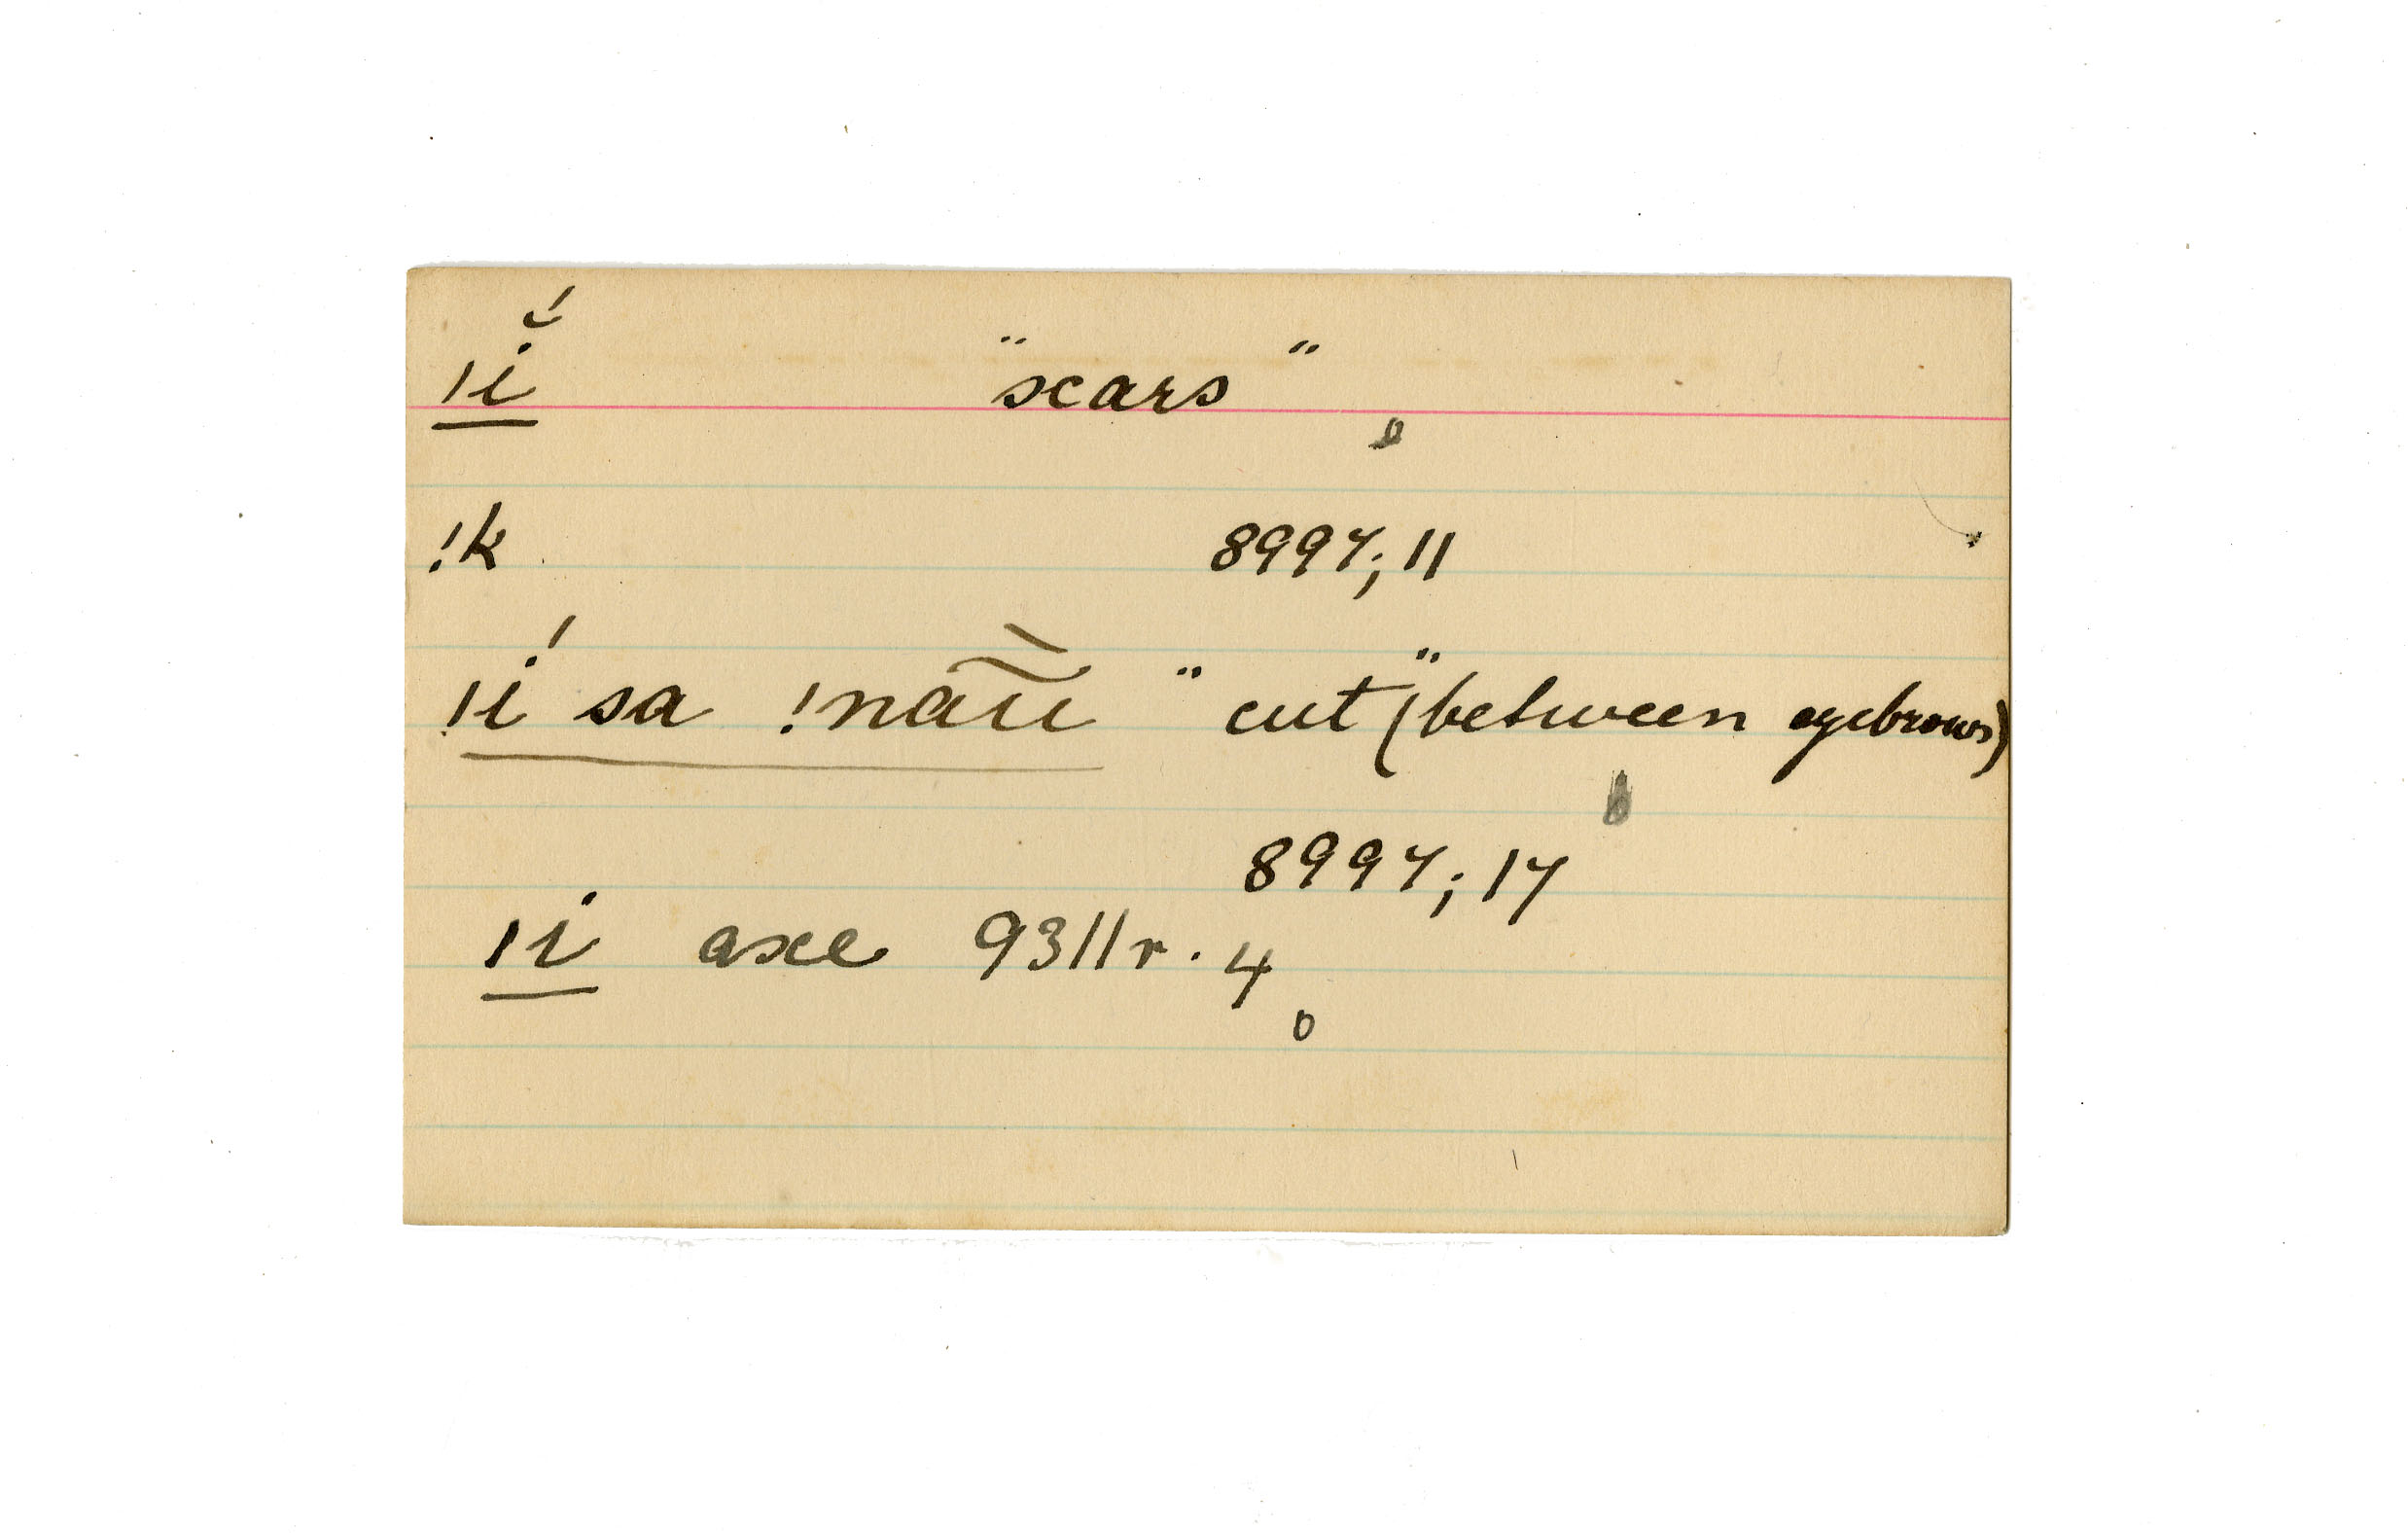 ǀĭ́ "scars"
!k 8997; 11
ǃí sa !na͠ùi "cut" (between eyebrows)
8997; 17
ǀi axe 9311r. 4